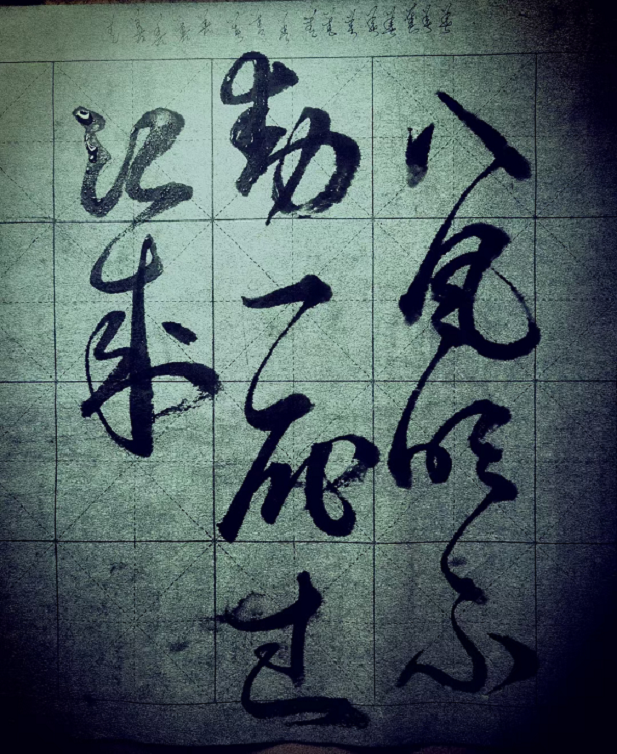 八风吹不
动一屁过
江来